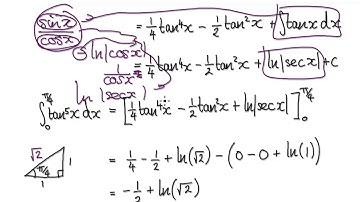 sinx/cosx = ¼tan⁴x − ½tan²x + ∫tanx dx
− ln|cosx| = ¼tan⁴x − ½tan²x + ln|secx| + c
1/cosx
ln|secx|
∫₀^(π/4) tan⁵x dx = [¼tan⁴x − ½tan²x + ln|secx|]₀^(π/4)
√2 1 π/4 1
= ¼ − ½ + ln(√2) − (0 − 0 + ln(1))
= −½ + ln(√2)